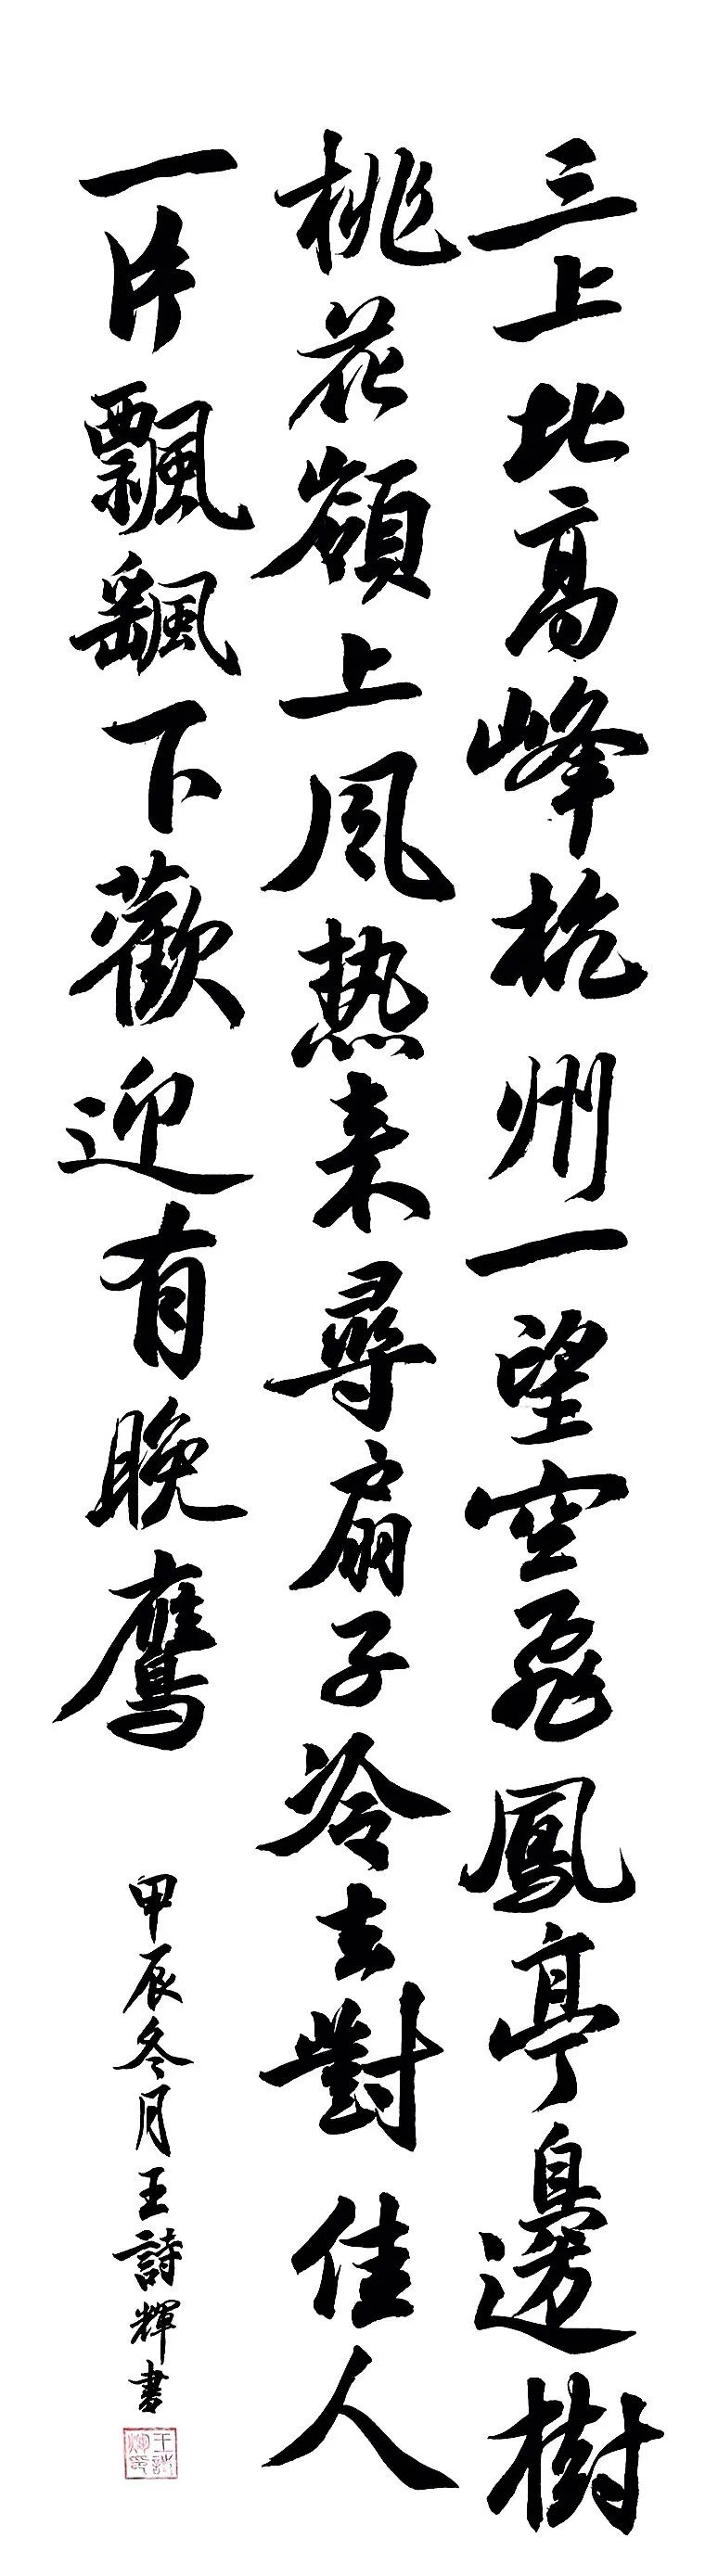 三上北高峰杭州一望空飛鳳亭邊樹
桃花嶺上風热来尋扇子冷去對佳人
一片飄飖下歡迎有晚鷹
甲辰冬月王詩輝書